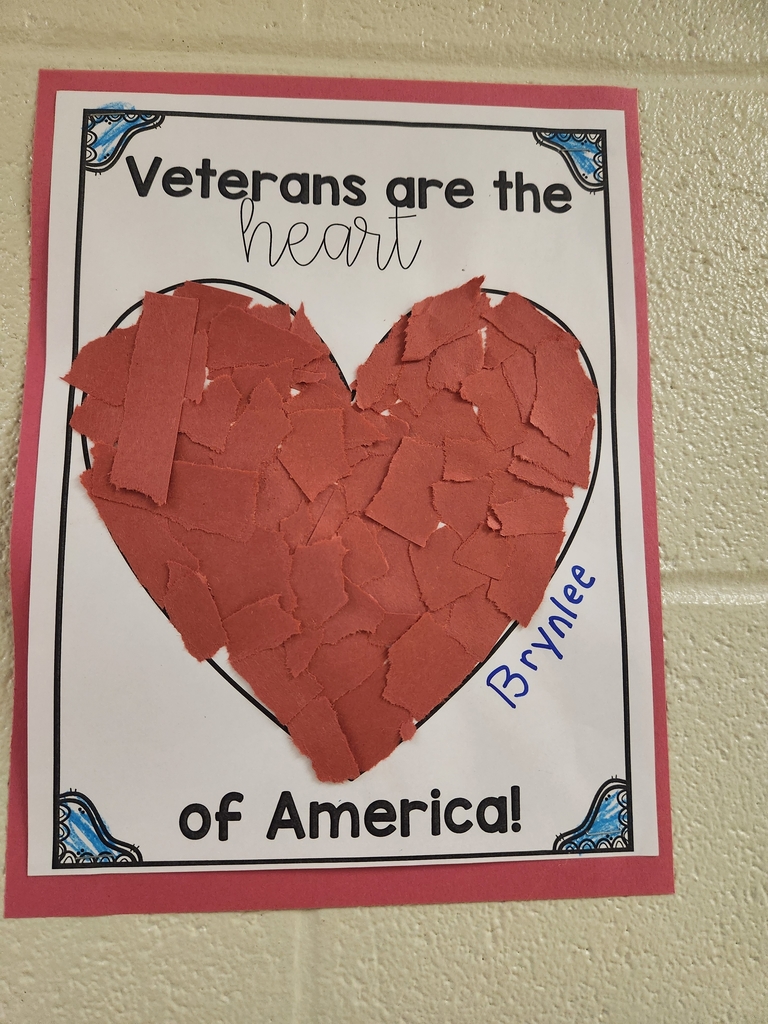 Veterans are the
heart
Brynlee
of America!